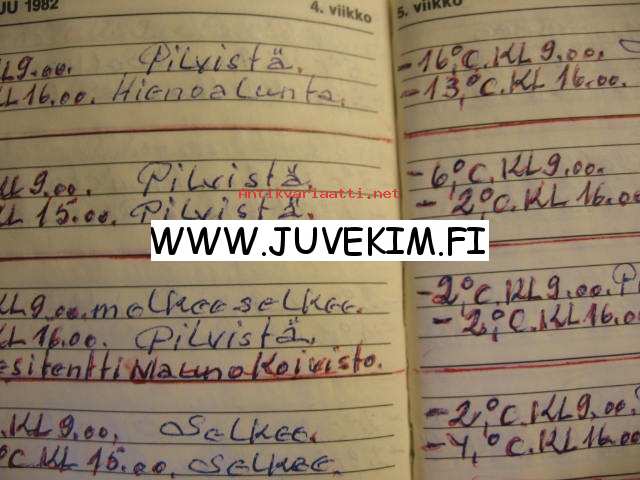 UU 1982 4. viikko
KL 9.00. Pilvistä.
KL 16.00. Hienoa lunta.
KL 9.00. Pilvistä.
KL 15.00. Pilvistä.
KL 9.00. melkee selkee.
KL 16.00. Pilvistä.
esitentti Mauno Koivisto.
.KL 9.00. Selkee.
°C. KL 15.00. Selkee.
5. viikko
-16,°C. KL 9.00.
-13,°C. KL 16.00.
-6,°C. KL 9.00.
-2°C. KL 16.00
-2,°C. KL 9.00. Pi
-2,°C. KL 16.00
-2,°C. KL 9.00.
-4,°C. KL 16.00
Antikvariaatti.net
WWW.JUVEKIM.FI